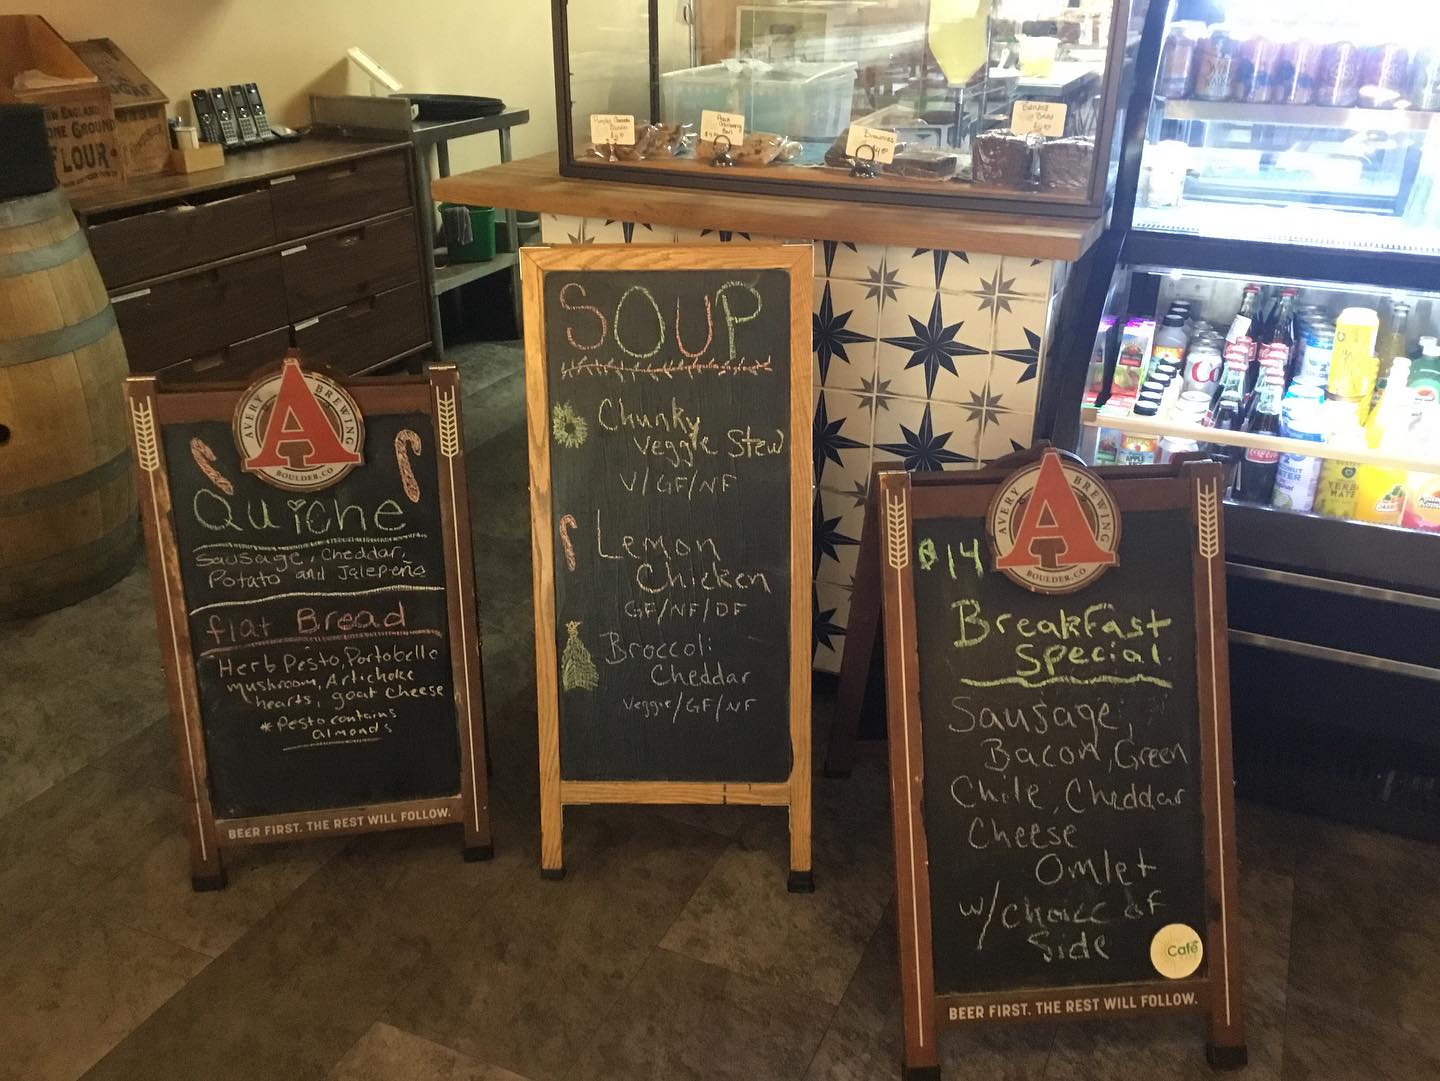 FLOUR
AVERY BREWING
A
BOULDER, CO
Quiche
Sausage, Cheddar,
Potato and Jalepeño
flat Bread
Herb Pesto, Portobelle
mushroom, Artichoke
hearts, goat cheese
*Pesto contains
almonds
BEER FIRST. THE REST WILL FOLLOW.
SOUP
Chunky
Veggie Stew
V/GF/NF
Lemon
Chicken
GF/NF/DF
Broccoli
Cheddar
Veggie/GF/NF
AVERY BREWING
A
BOULDER, CO
$14
Breakfast
Special
Sausage,
Bacon, Green
Chile, Cheddar
Cheese
Omlet
w/choice of
Side
Café
BEER FIRST. THE REST WILL FOLLOW.
Brownies